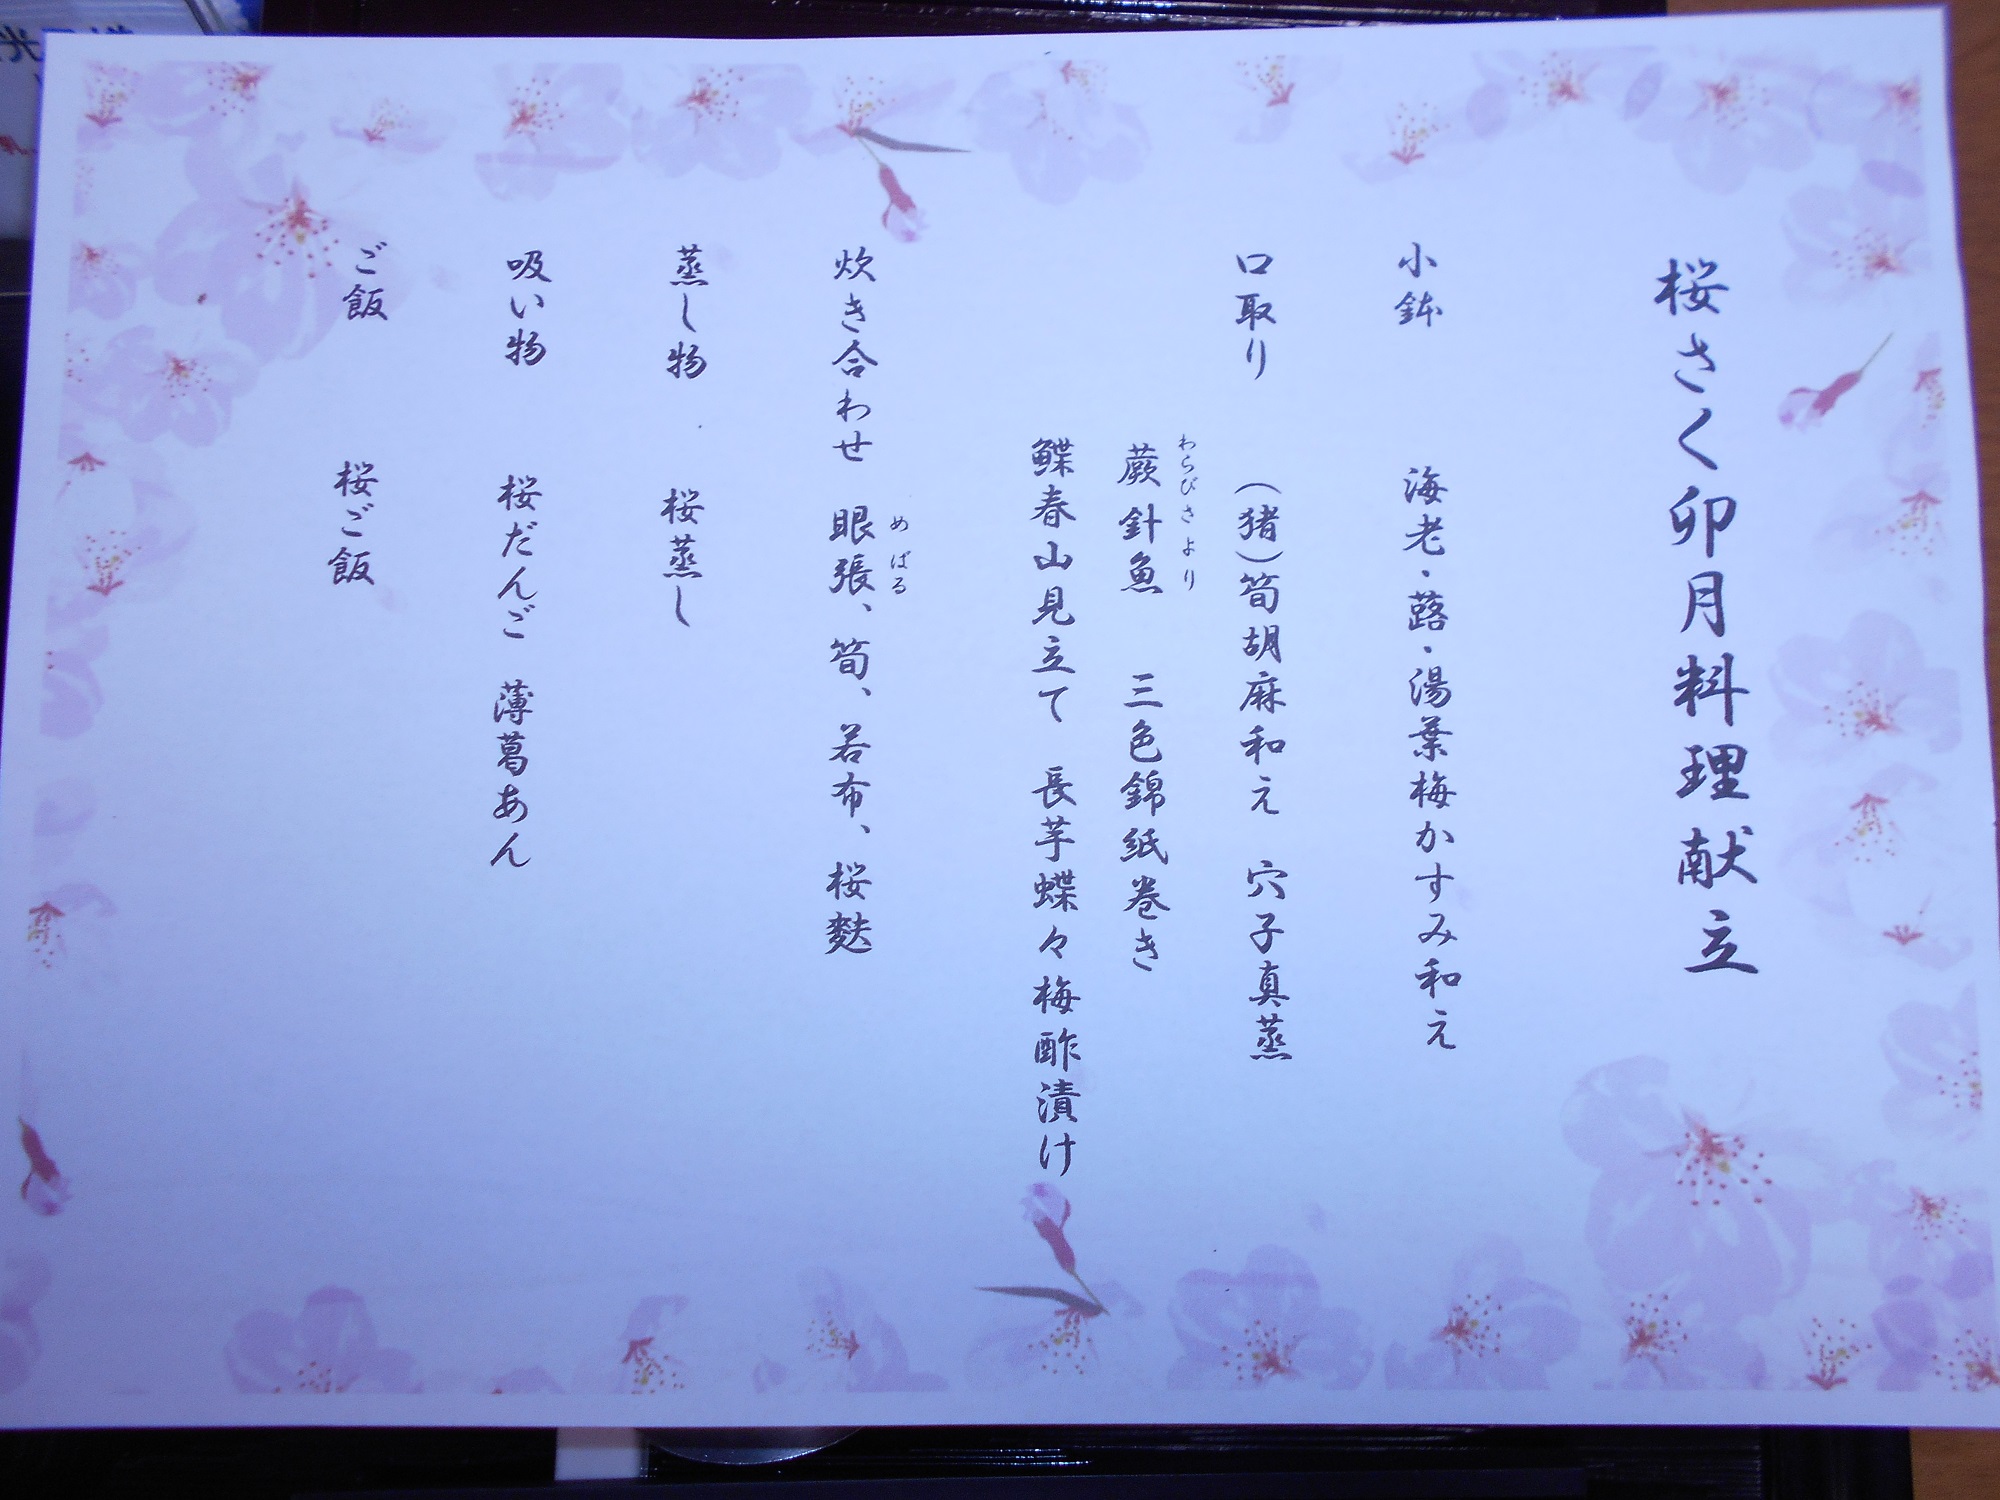 桜さく卯月料理献立
小鉢 海老・蕗・湯葉梅かすみ和え
口取り (猪)筍胡麻和え 穴子真蒸
わらびさより
蕨針魚 三色錦紙巻き
鰈春山見立て 長芋蝶々梅酢漬け
めばる
炊き合わせ 眼張、筍、若布、桜麩
蒸し物 桜蒸し
吸い物 桜だんご 薄葛あん
ご飯 桜ご飯